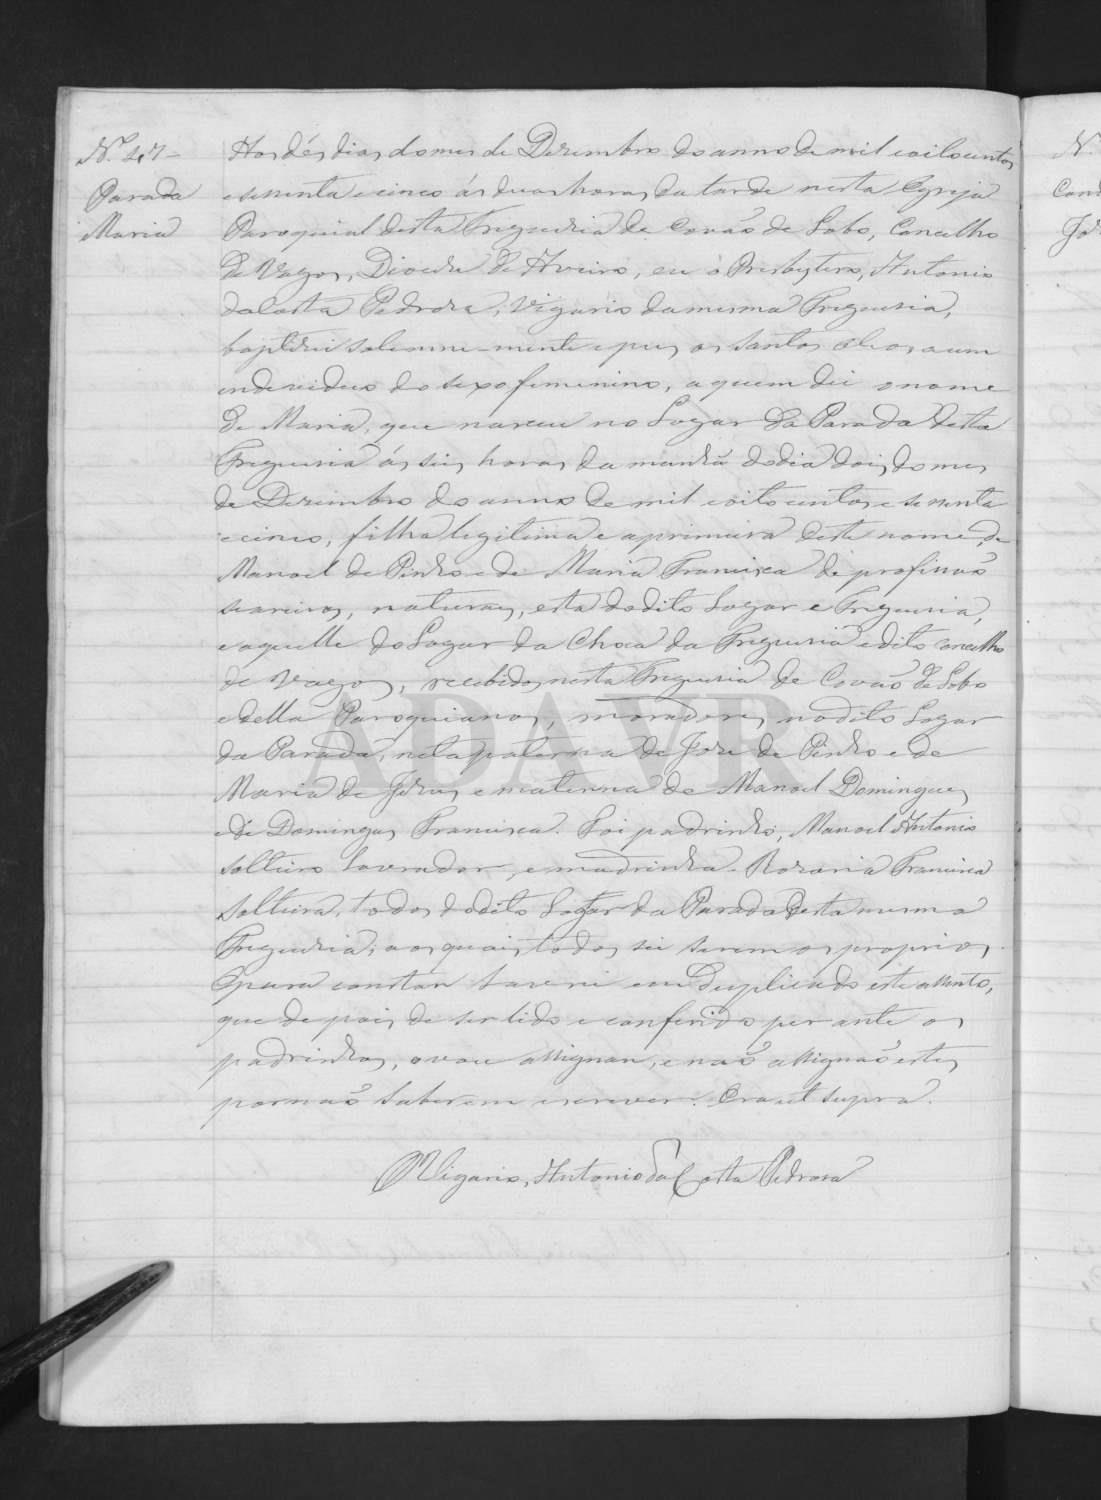 N.º 47-
Parada
Maria
Aos dés dias do mes de Dezembro do anno de mil e oitocentos
e sesenta e cinco ás duas horas da tarde nesta Egreja
Paroquial desta Freguezia de Covão de Lobo, Concelho
de Vagos, Diocese de Aveiro, eu o Presbytero, Antonio
da Costa Pedroza, Vigario da mesma Freguesia,
baptizei solemne-mente e pus os Santos Oleos a um
individuo do sexo femenino, a quem dei o nome
de Maria, que nasceu no Logar da Parada desta
Freguesia ás seis horas da manhã do dia dois do mes
de Dezembro do anno de mil e oitocentos e sesenta
e cinco, filha legitima e a primeira deste nome, de
Manoel de Pinho e de Maria Francisca de profissão
seareiros, naturaes, esta do dito Logar e Freguesia,
e aquelle do Logar da Choca da Freguesia e dito concelho
de Vagos, recebidos nesta Freguesia de Covão de Lobo
e della Paroquianos, moradores no dito Logar
da Parada, neta paterna de Jose de Pinho e de
Maria de Jesus e materna de Manoel Domingues
e de Domingas Francisca. Foi padrinho, Manoel Antonio
solteiro Lavrador, e madrinha Rozaria Francisca
solteira, todos do dito Logar da Parada desta mesma
Freguezia, aos quais todos sei serem os proprios.
E para constar lavrei em Duplicado este assento,
que depois de ser lido e conferido perante os
padrinhos, o vou assignar, e não assignão estes
por não saberem escrever. Era ut supra.
O Vigario, Antonio da Costa Pedroza
N
Cond
Jos
ADAVR